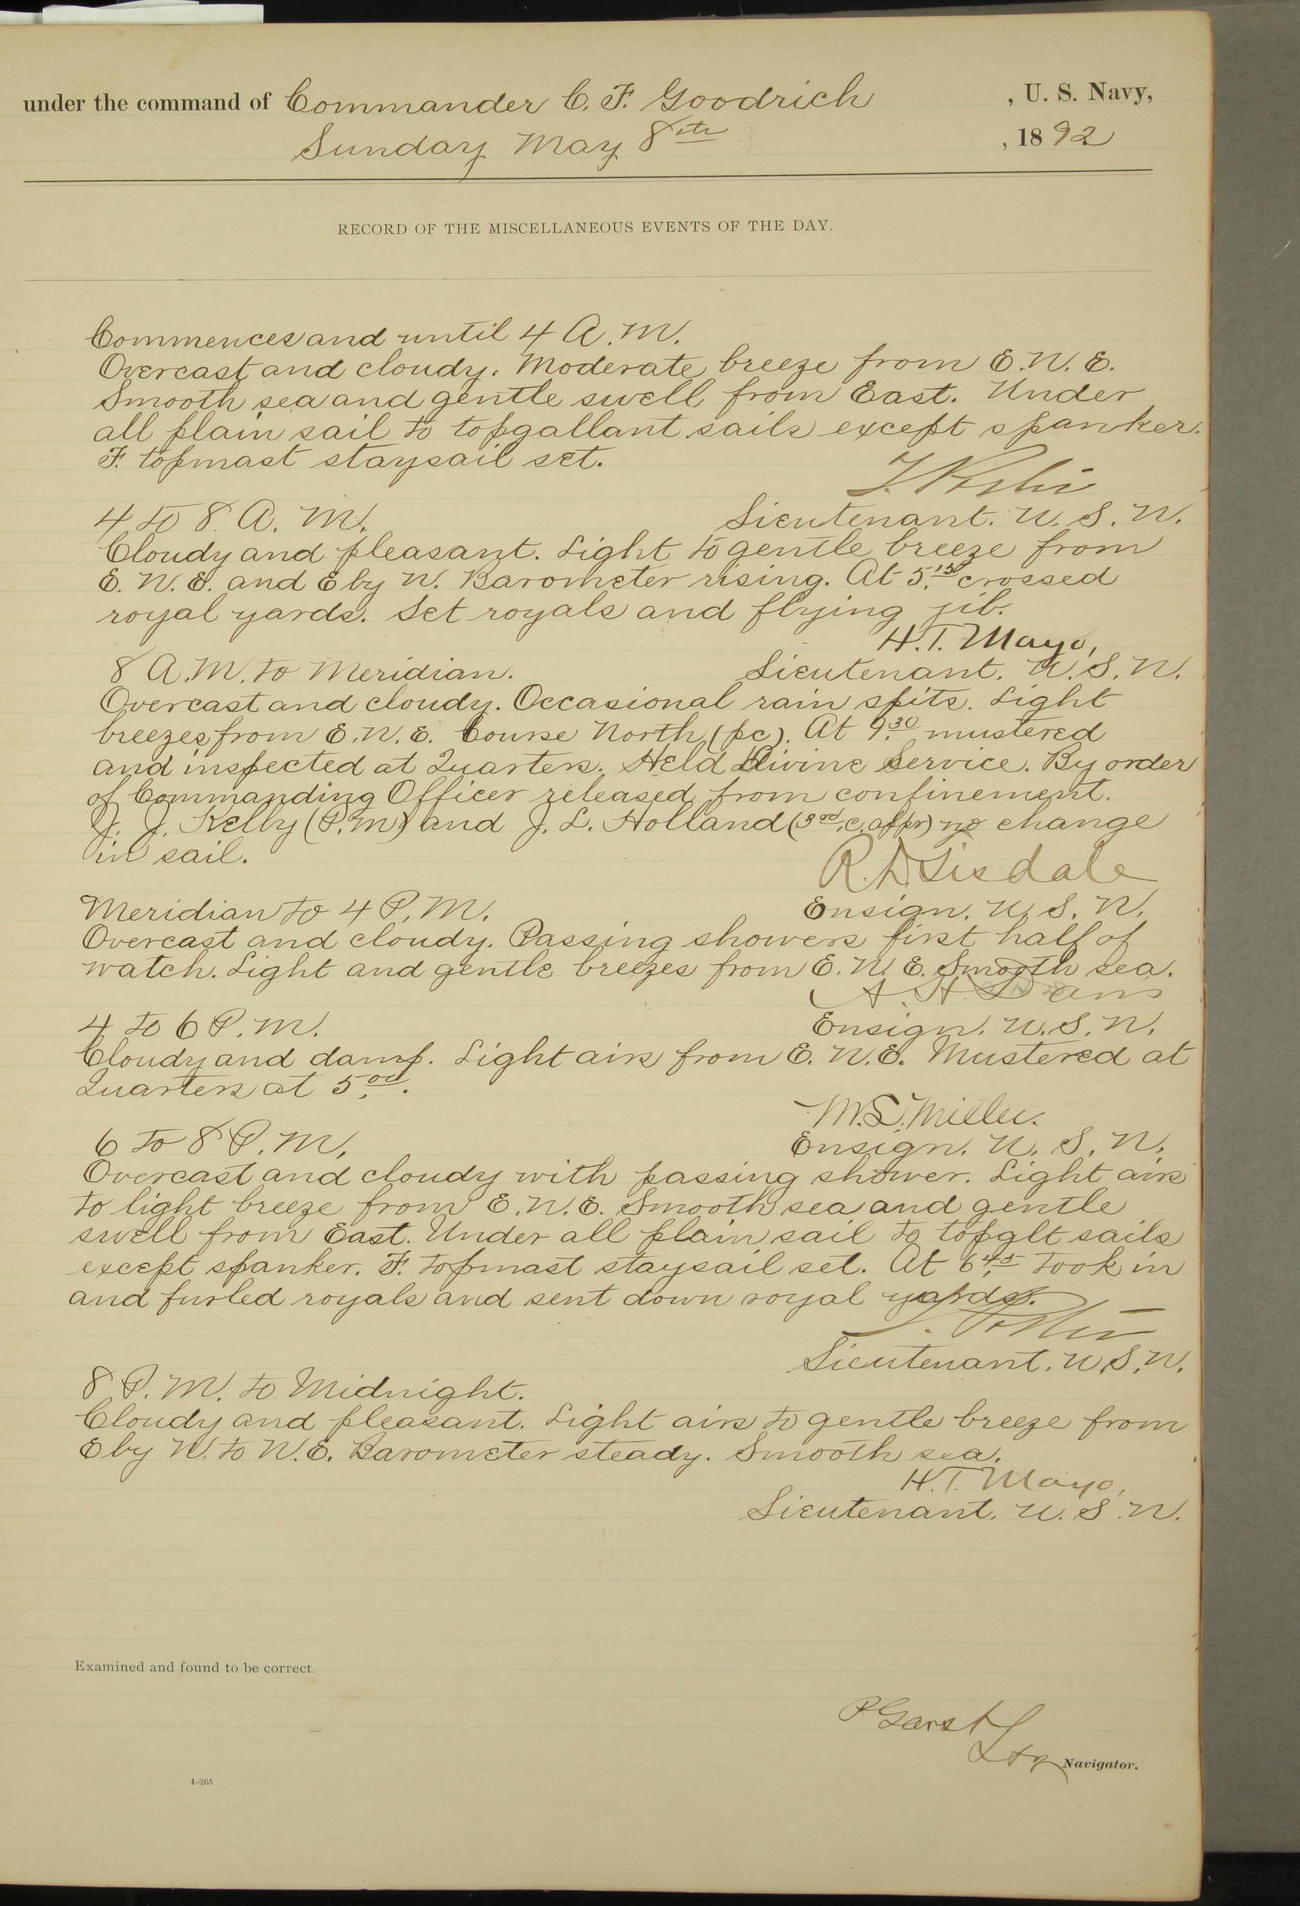 under the command of Commander C. F. Goodrich , U. S. Navy,
Sunday May 8th , 1892
RECORD OF THE MISCELLANEOUS EVENTS OF THE DAY.
Commences and until 4 A.M.
Overcast and cloudy. Moderate breeze from E.N.E.
Smooth sea and gentle swell from East. Under
all plain sail to topgallant sails except spanker.
F. topmast staysail set.
4 to 8 A.M.
Lieutenant. U.S.N.
Cloudy and pleasant. Light to gentle breeze from
E.N.E. and E by N. Barometer rising. At 5.15 crossed
royal yards. Set royals and flying jib.
H.T. Mayo,
8 A.M. to Meridian.
Lieutenant. U.S.N.
Overcast and cloudy. Occasional rain spits. Light
breezes from E.N.E. Course North (pc). At 9.30 mustered
and inspected at Quarters. Held Divine Service. By order
of Commanding Officer released from confinement.
J. J. Kelly (P.M) and J. L. Holland (3rd.c.appr) no change
in sail.
R. D Tisdale
Meridian to 4 P.M.
Ensign. U.S.N.
Overcast and cloudy. Passing showers first half of
watch. Light and gentle breezes from E.N.E. Smooth sea.
A. H.
4 to 6 P.M.
Ensign. U.S.N.
Cloudy and damp. Light airs from E.N.E. Mustered at
Quarters at 5.00.
M.L. Miller.
6 to 8 P.M.
Ensign. U.S.N.
Overcast and cloudy with passing shower. Light airs
to light breeze from E.N.E. Smooth sea and gentle
swell from East. Under all plain sail to topglt sails
except spanker. F. topmast staysail set. At 6.45 took in
and furled royals and sent down royal yards.
Lieutenant. U.S.N.
8 P.M. to Midnight.
Cloudy and pleasant. Light airs to gentle breeze from
E by N. to N.E. Barometer steady. Smooth sea.
H.T. Mayo,
Lieutenant. U.S.N.
Examined and found to be correct.
P Garst
Navigator.
4-265